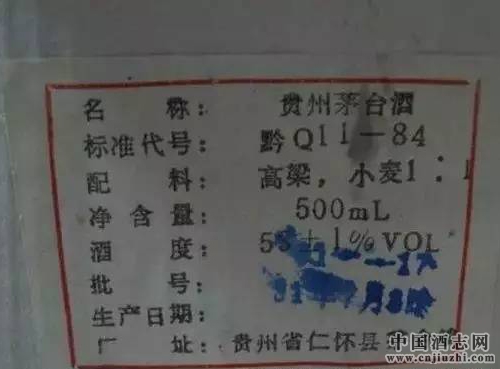 名 称： 贵州茅台酒
标准代号： 黔Q11-84
配 料： 高梁，小麦1：1
净含量： 500mL
酒 度： 53±1%VOL
批 号：
生产日期：
厂 址： 贵州省仁怀县
中国酒志网
www.cnjiuzhi.com